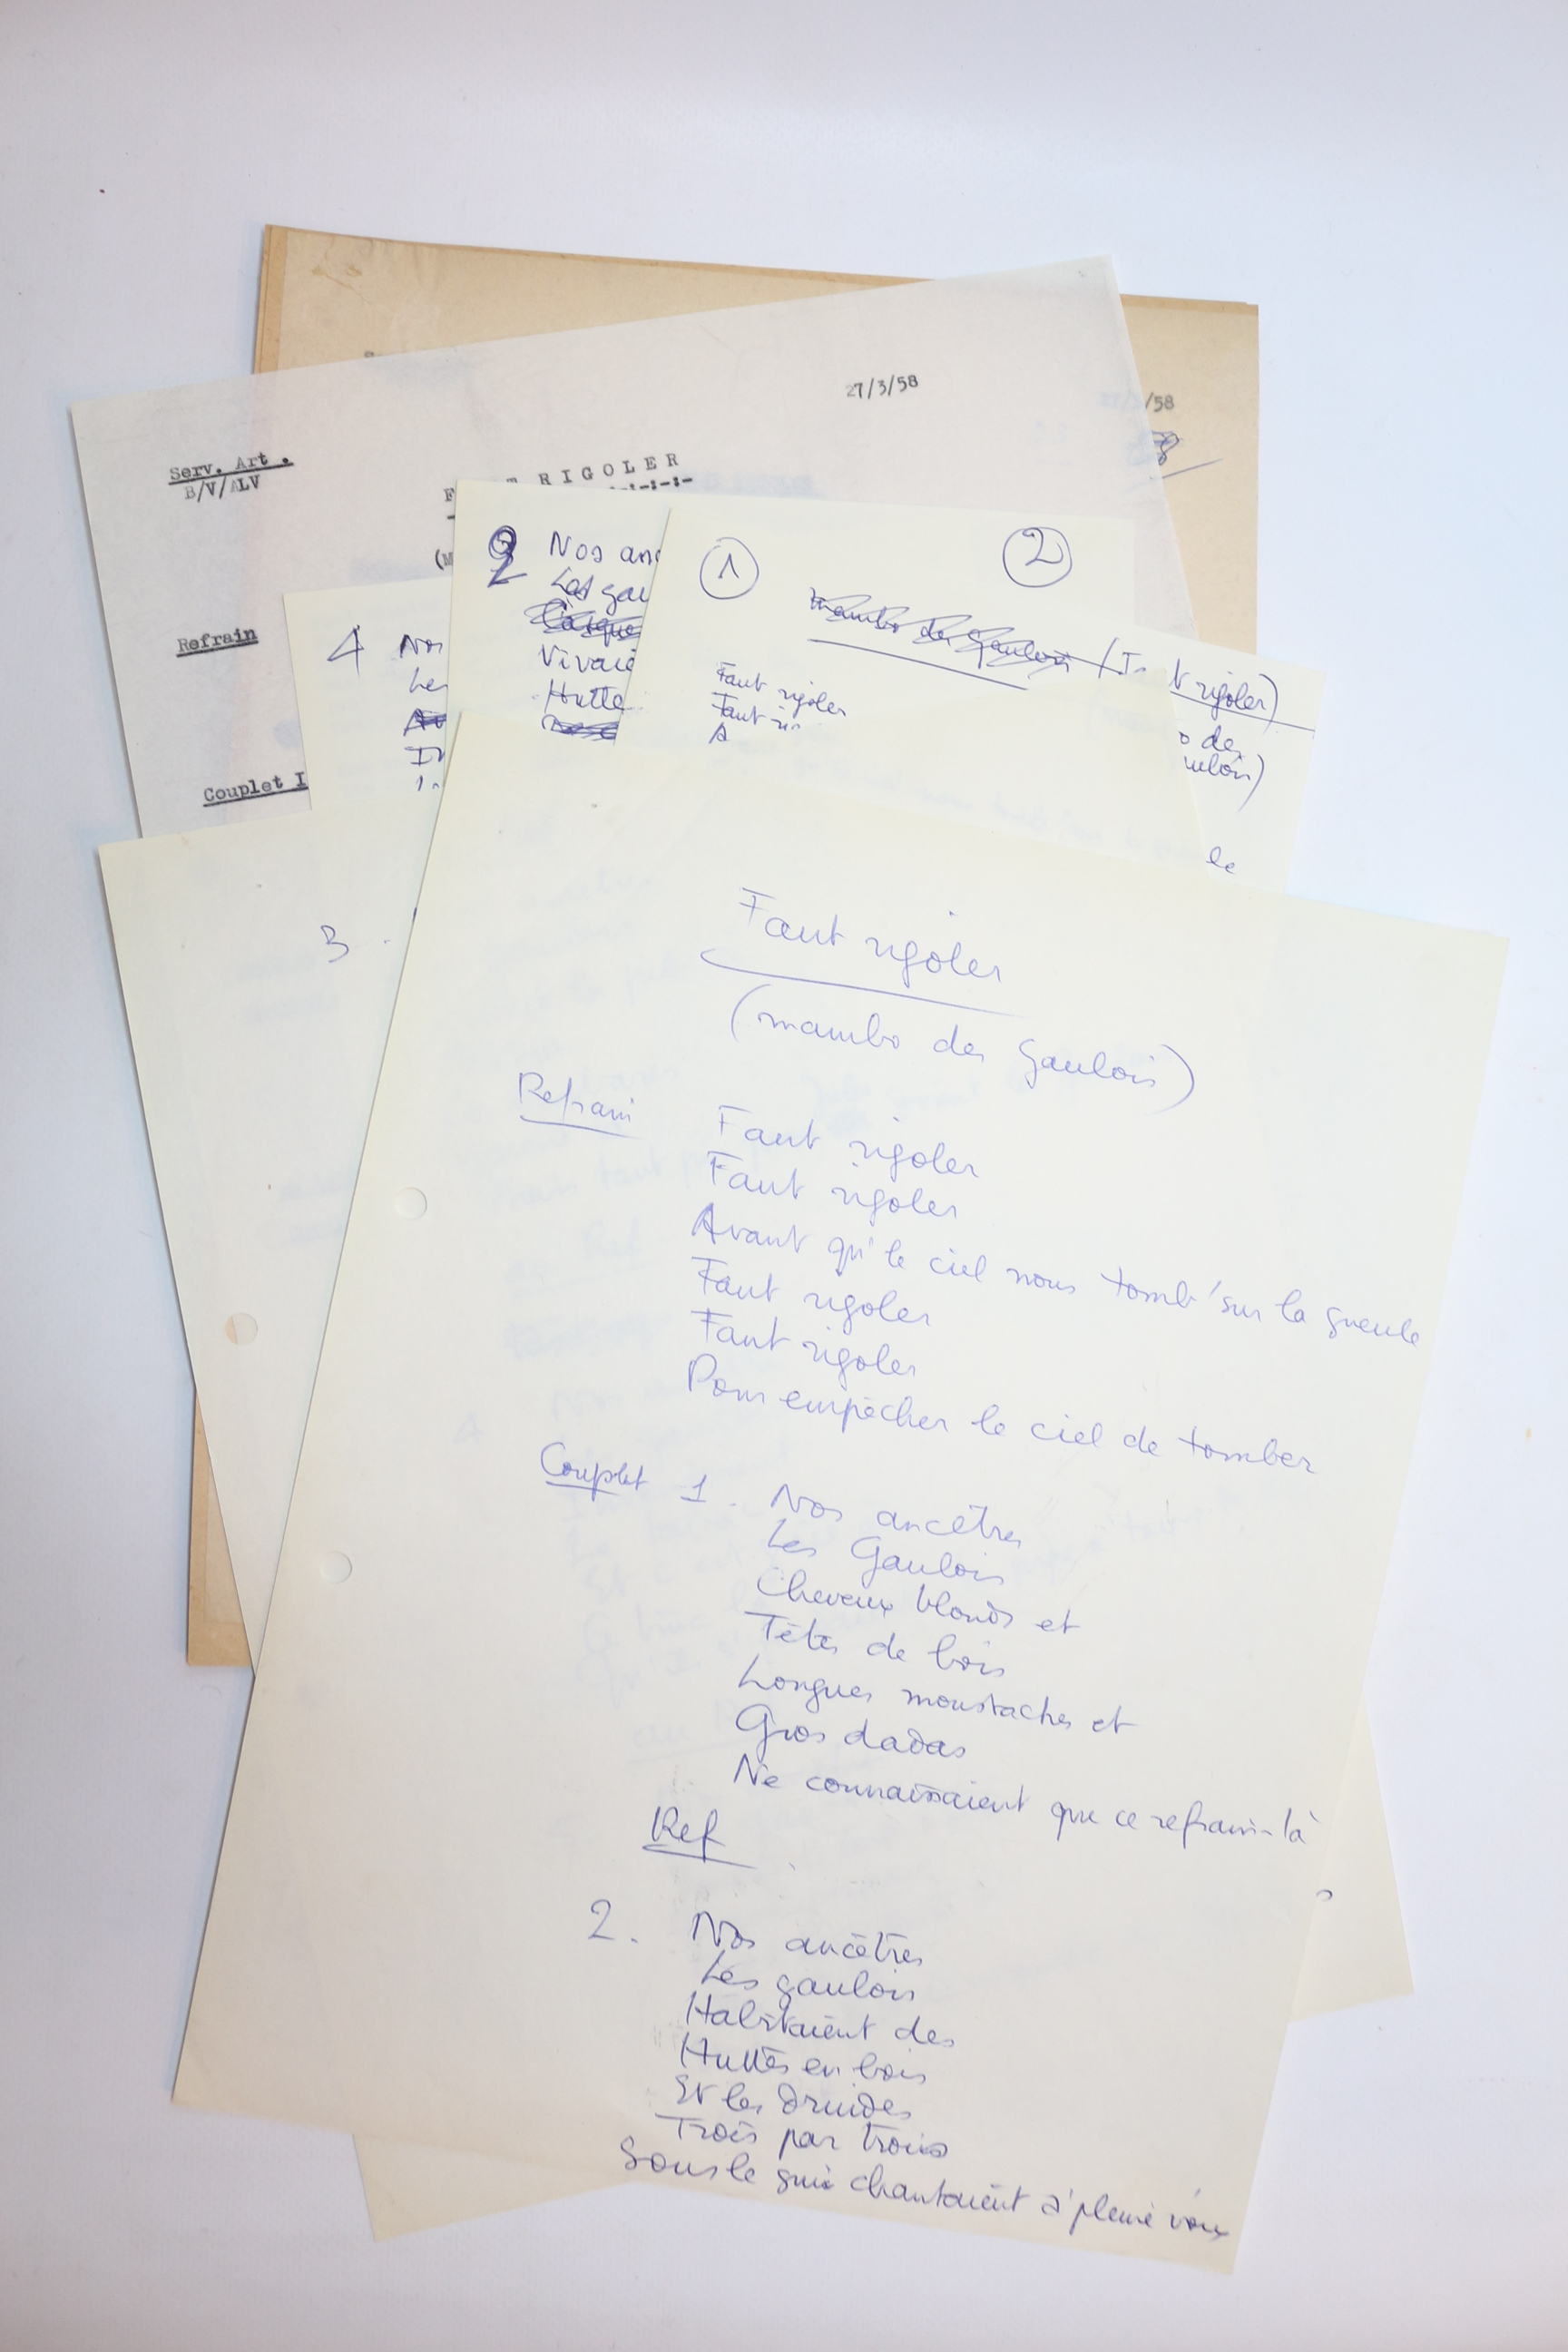 27/3/58
/58
Serv. Art.
B/V/ALV
RIGOLER
Refrain
Couplet I
4 Nos
Les
2 Nos anc
Les gau
Vivaie
Hutte
1
2
mambo des gaulois
t rigoler)
o des
ulois)
le
Faut rigoler
Faut ri
A
3.
Faut rigoler
(mambo des gaulois)
Refrain
Faut rigoler
Faut rigoler
Avant qu'le ciel nous tomb' sur la gueule
Faut rigoler
Faut rigoler
Pour empêcher le ciel de tomber
Couplet 1. Nos ancêtres
Les Gaulois
Cheveux blonds et
Têtes de bois
Longues moustaches et
Gros dadas
Ne connaissaient que ce refrain-là
Ref
2. Nos ancêtres
Les gaulois
Habitaient des
Huttes en bois
Et les druides
Trois par trois
Sous le gui chantaient à pleine voix